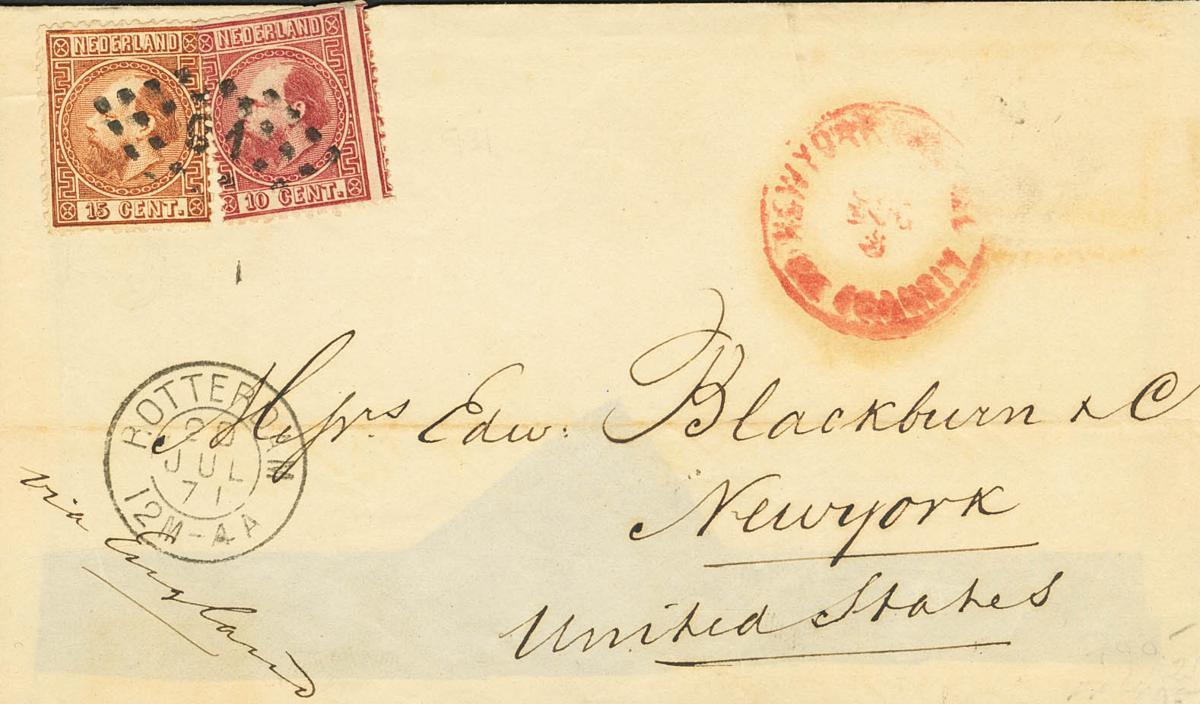 NEDERLAND NEDERLAND
15 CENT. 10 CENT.
91
NEW YORK
ROTTERDAM
JUL
71
12M-4A
Messrs Edw. Blackburn & C
Newyork
United States
via England